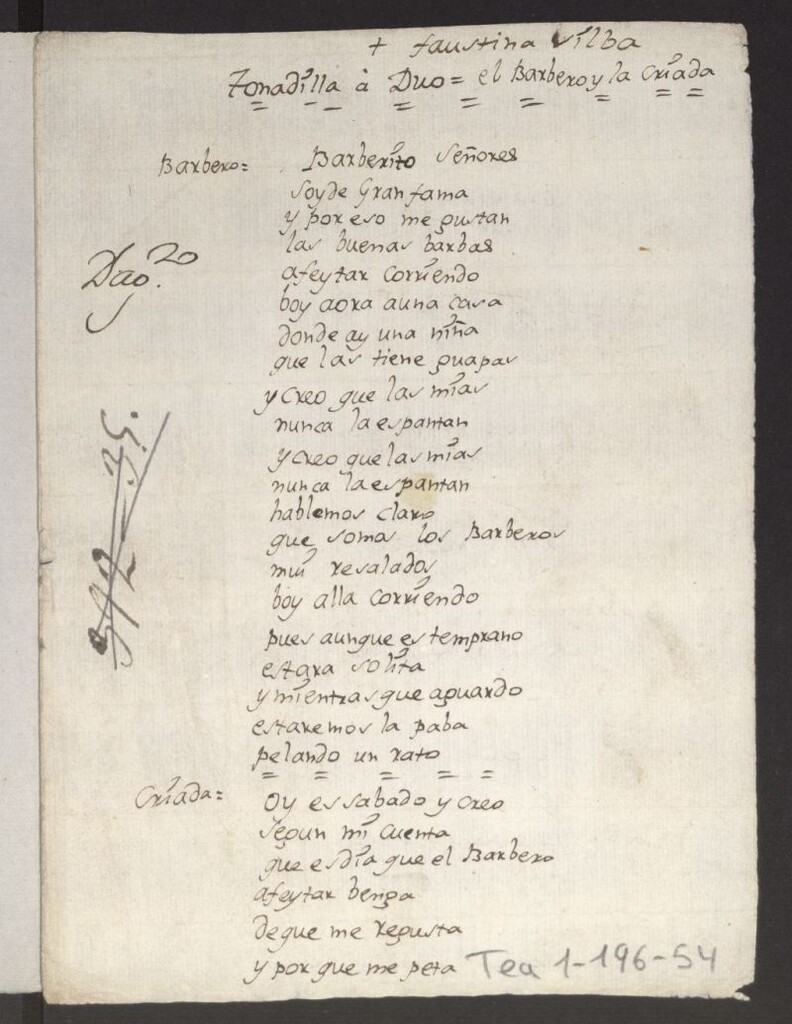 + faustina Silba
Tonadilla à Duo = el Barbero y la Criada
Barbero = Barberito Señores
soy de Gran fama
y por eso me gustan
las buenas barbas
afeytar corriendo
boy aora a una casa
donde ay una niña
que las tiene guapas
y creo que las mias
nunca la espantan
y creo que las mias
nunca la espantan
hablemos claro
que somos los Barberos
mui resalados
boy alla corriendo
pues aunque es temprano
estara solita
y mientras que aguardo
estaremos la paba
pelando un rato
Criada = Oy es sabado y creo
segun mi cuenta
que es dia que el Barbero
afeytar benga
de que me regusta
y por que me peta
Tea 1-196-54